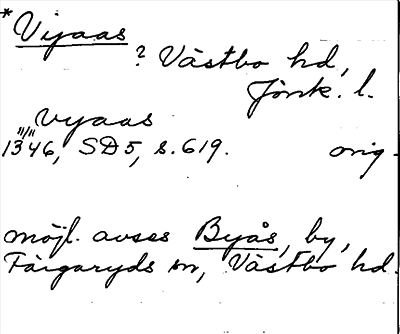 *Vijaas
? Västbo hd,
Jönk. l.
Vyaas
11/11
1346, SD5, s. 619. orig.
möjl. avses Byås, by,
Färgaryds sn, Västbo hd.